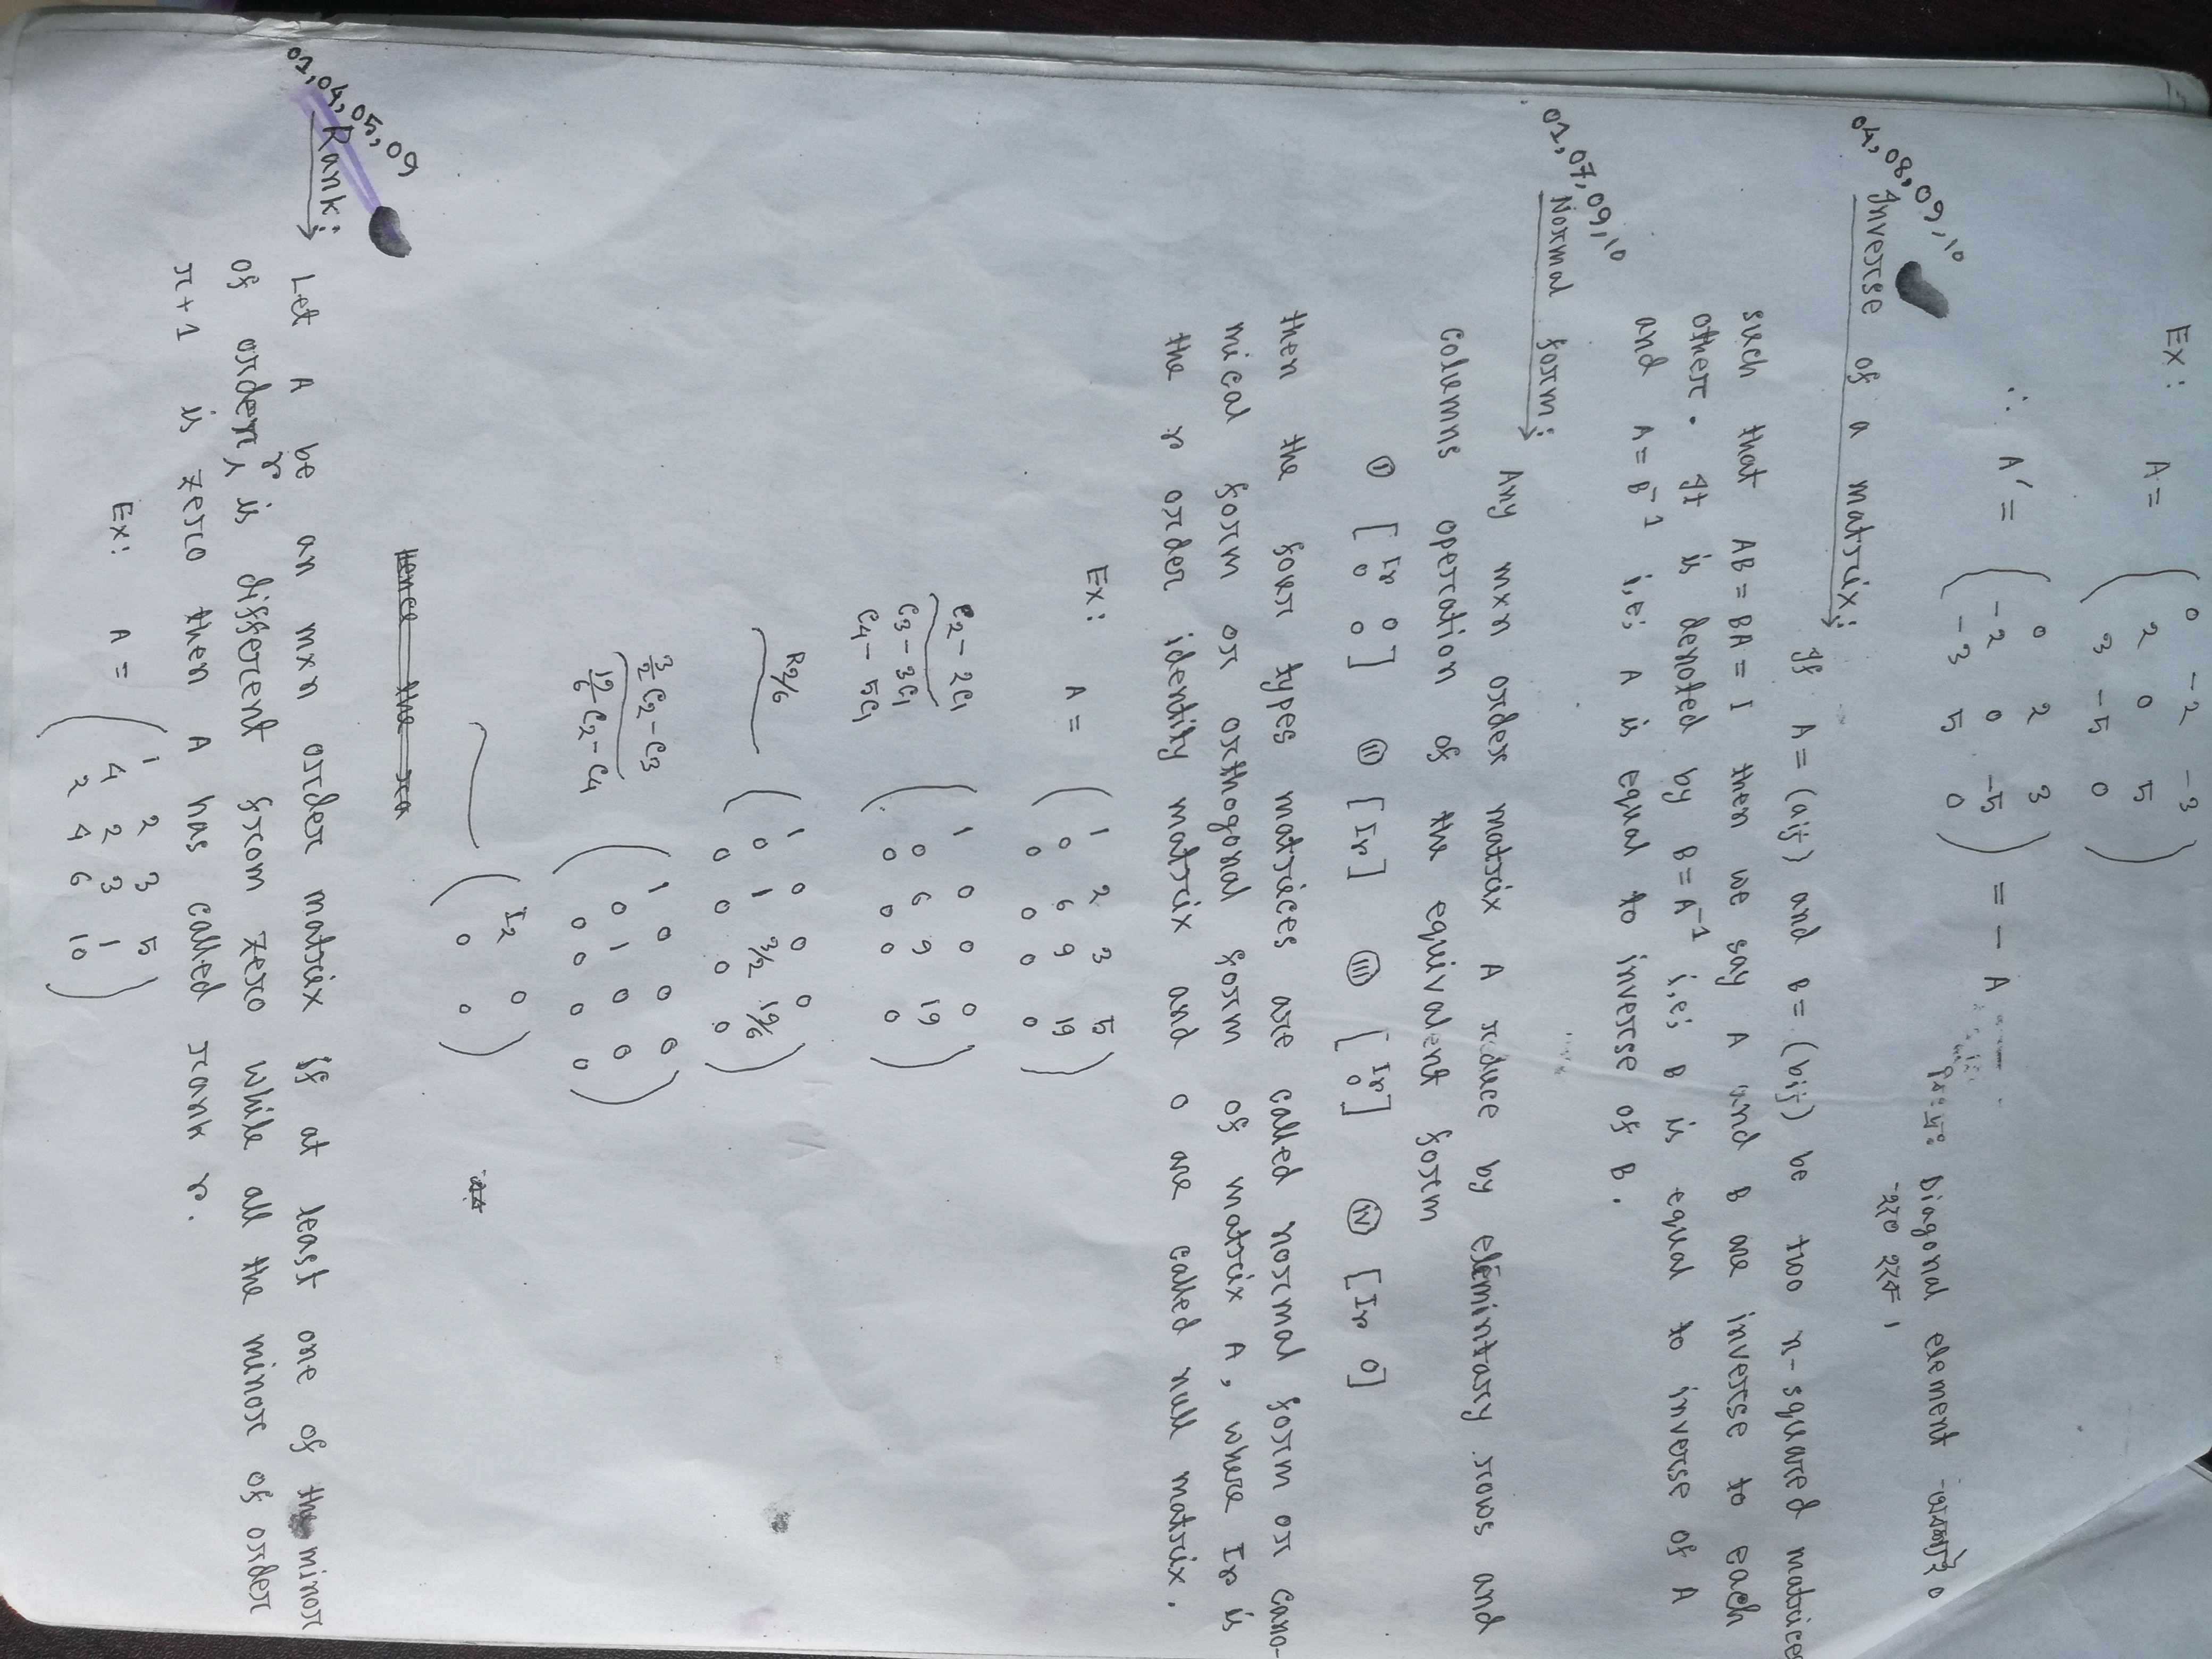 Ex: A = ( 0 -2 -3
2 0 5
3 -5 0 )
∴ A′ = ( 0 2 3
-2 0 -5
-3 5 0 ) = - A
Diagonal element অবশ্যই 0
হতে হবে।
04, 08, 09, 10
Inverse of a matrix:
If A = (aij) and B = (bij) be two n-squared matrices
such that AB = BA = I then we say A and B are inverse to each
other. It is denoted by B = A⁻¹ i,e; B is equal to inverse of A
and A = B⁻¹ i,e; A is equal to inverse of B.
01, 07, 09, 10
Normal form:
Any m×n order matrix A reduce by elémintary rows and
columns operation of the equivalent form
(i) [ Ir 0
0 0 ] (ii) [Ir] (iii) [ Ir
0 ] (iv) [Ir 0]
then the four types matrices are called normal form or cano-
mical form or orthogonal form of matrix A, where Ir is
the r order identity matrix and 0 are called null matrix.
Ex: A = ( 1 2 3 5
0 6 9 19
0 0 0 0 )
C2 - 2C1
C3 - 3C1
C4 - 5C1
( 1 0 0 0
0 6 9 19
0 0 0 0 )
R2/6
( 1 0 0 0
0 1 3/2 19/6
0 0 0 0 )
3/2 C2 - C3
19/6 C2 - C4
( 1 0 0 0
0 1 0 0
0 0 0 0 )
( I2 0
0 0 )
Hence the ra
01, 04, 05, 09
Rank:
Let A be an m×n order matrix if at least one of the minor
of order r is different from zero while all the minor of order
r+1 is zero then A has called rank r.
Ex: A = ( 1 2 3 5
4 2 3 1
2 4 6 10 )